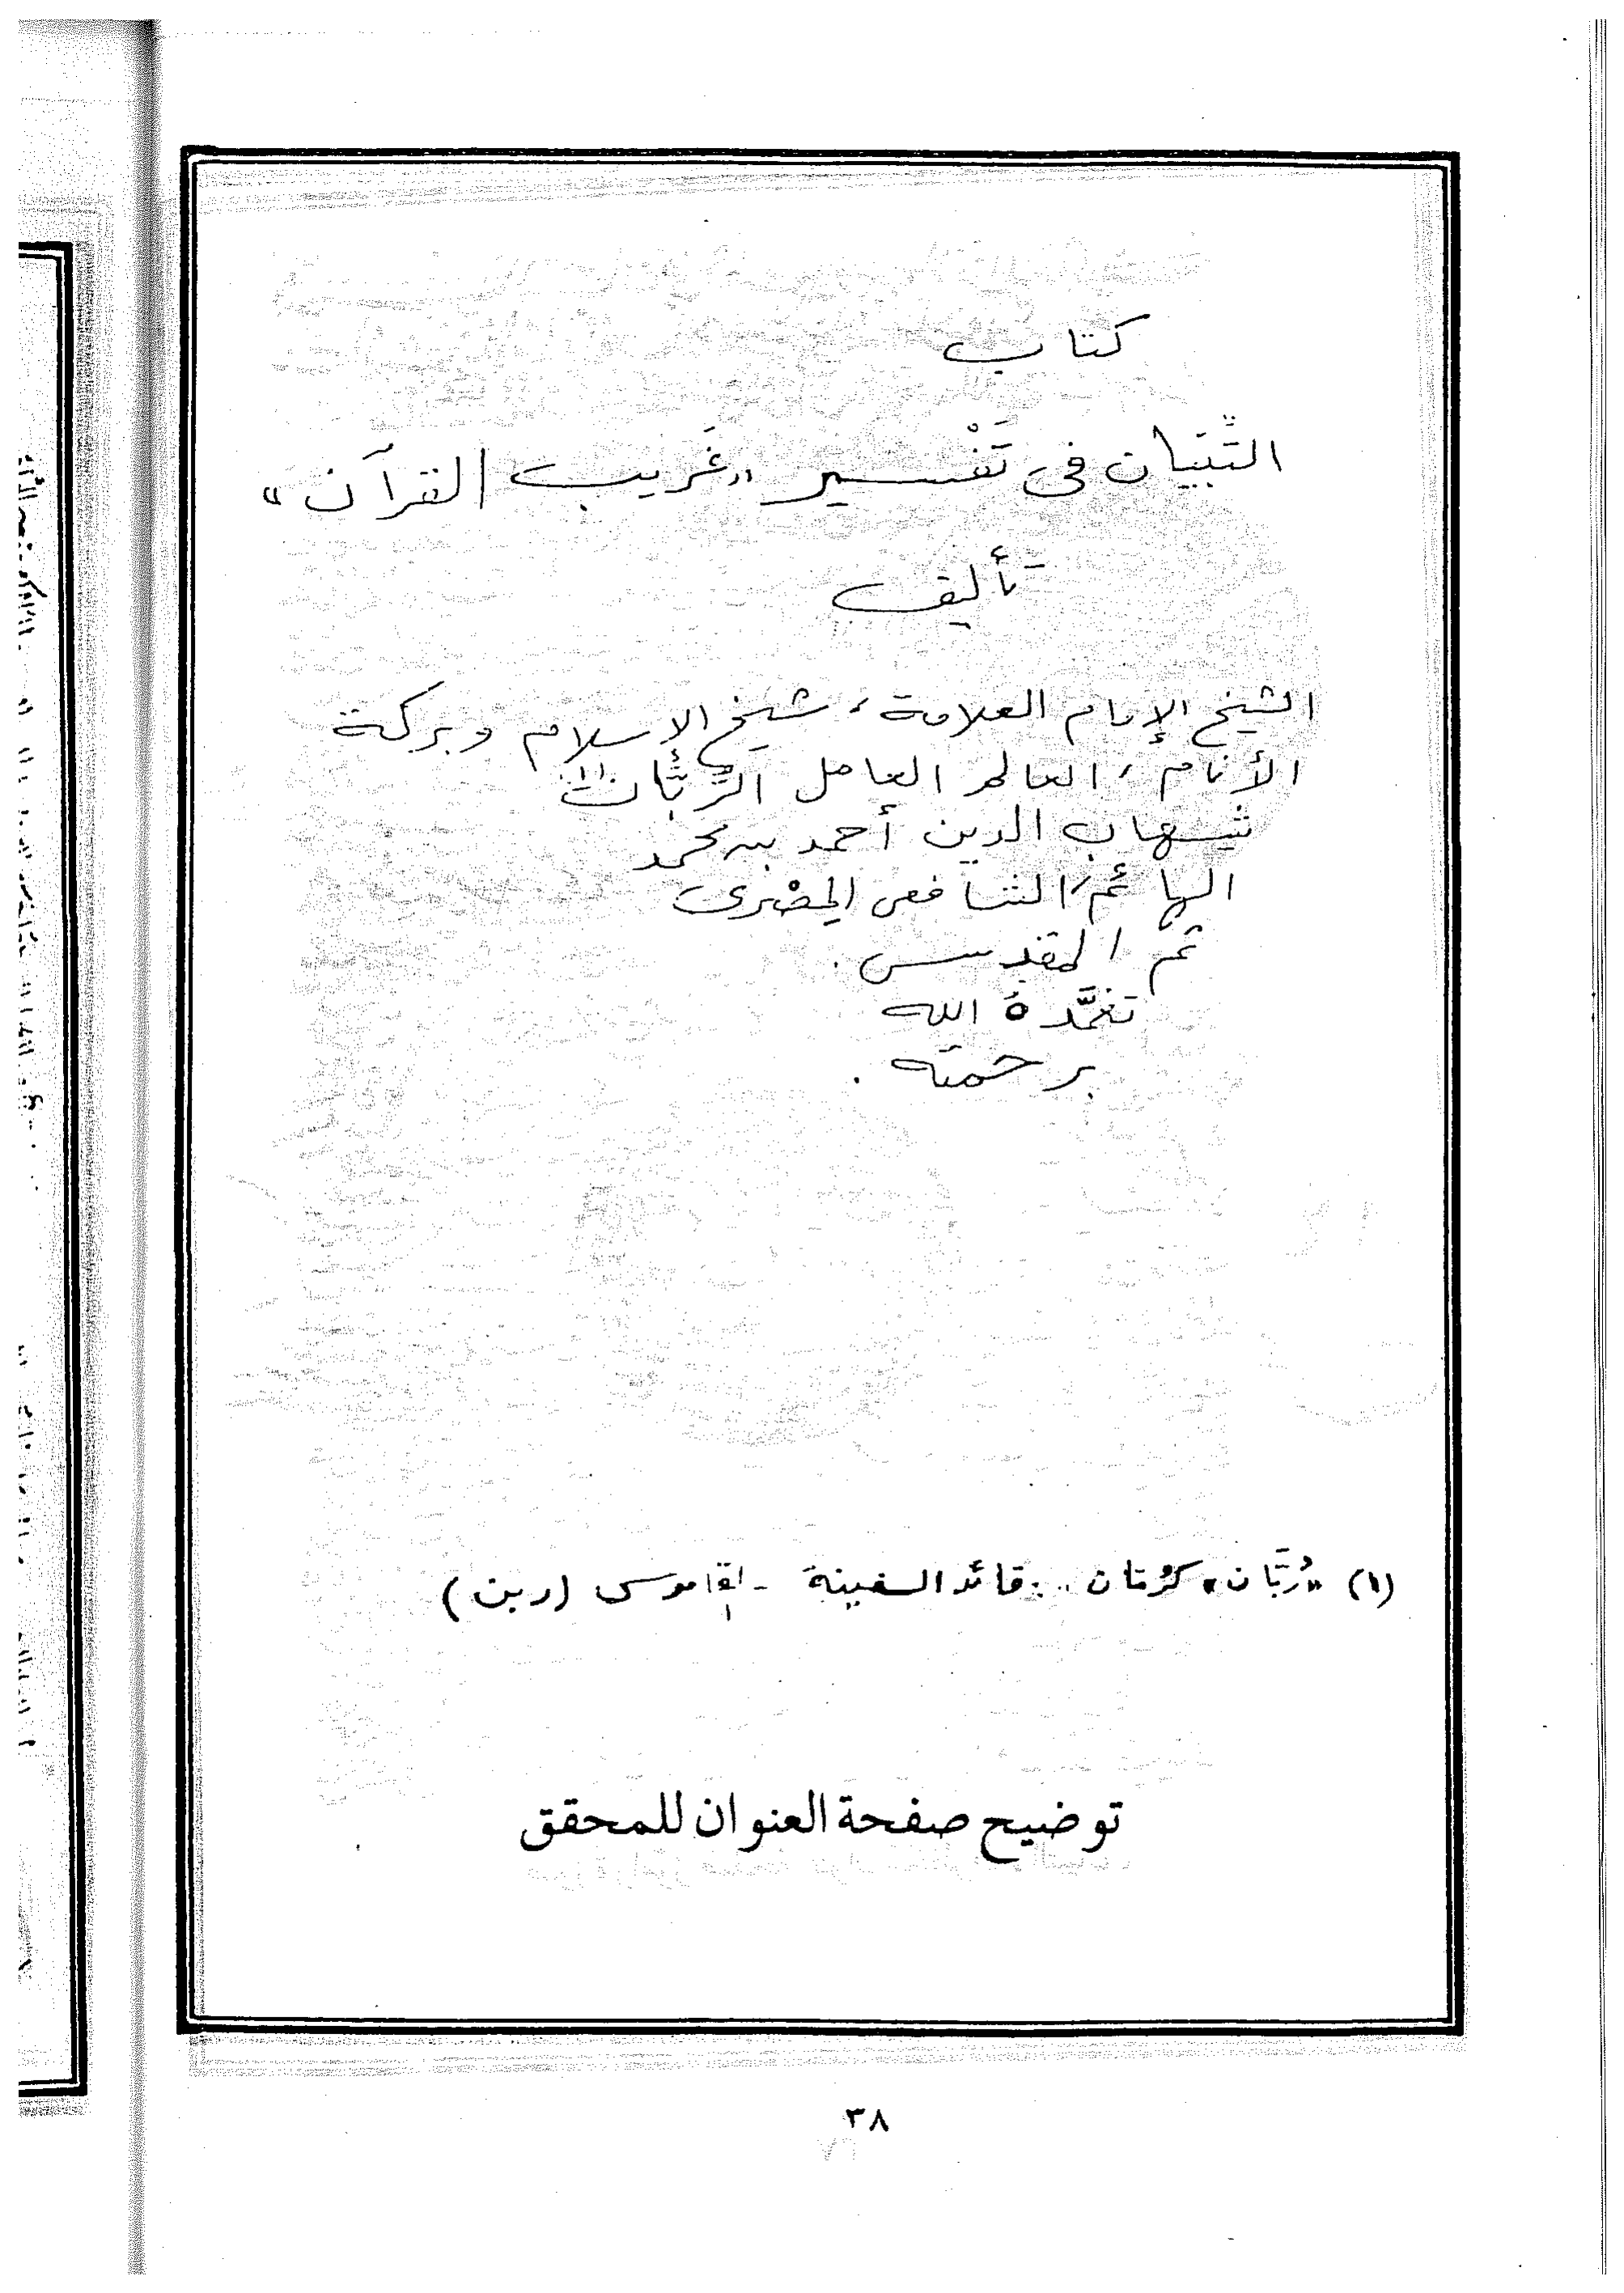 كتاب
التِّبْيَان في تَفْسير «غَريب القرآن»
تأليف
الشيخ الإمام العلامة، شيخ الإسلام وبركة
الأنام، العالم العامل الرُّبَّان (١)
شهاب الدين أحمد بن محمد
الهائم الشافعى المِصْرى
ثم المقدسى .
تغمَّدهُ الله
برحمته .
(١) «رُبَّان» كرُمّان : قائد السفينة - القاموس (ربن)
توضيح صفحة العنوان للمحقق
٣٨